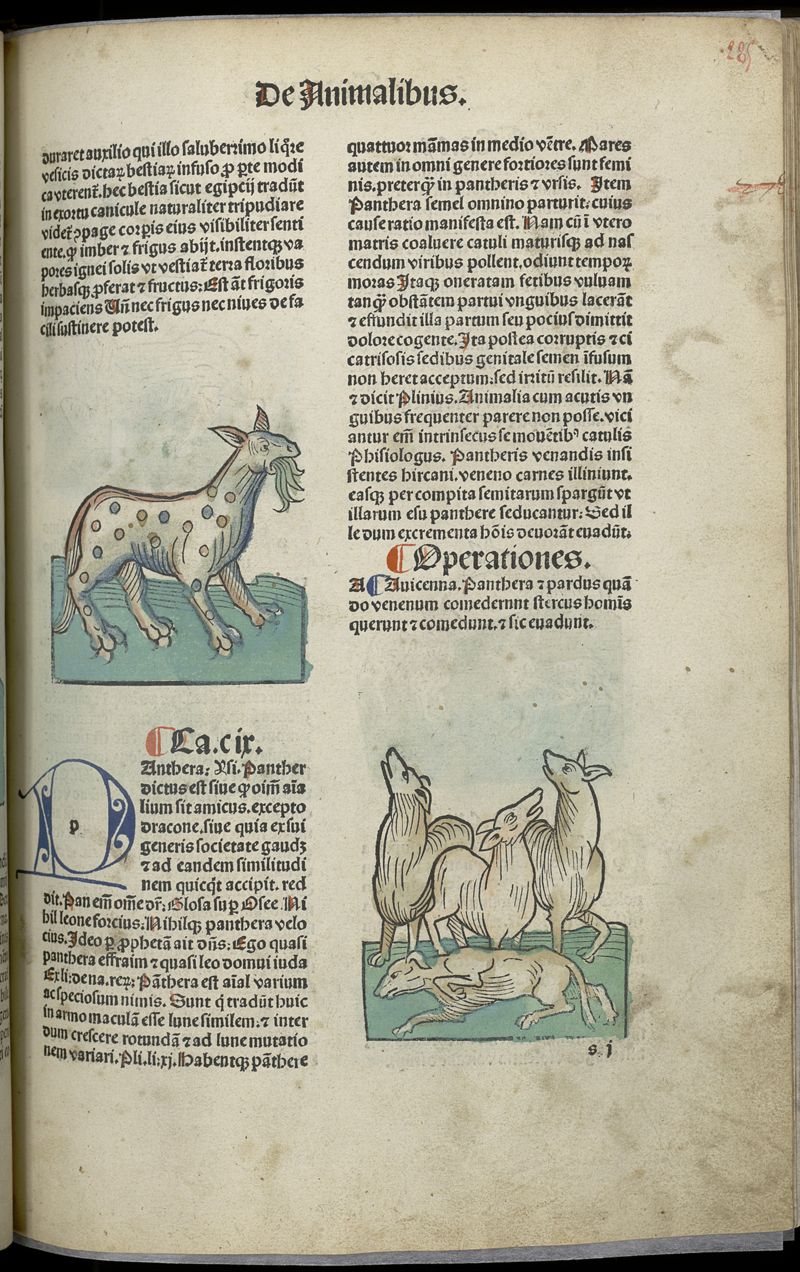 De Animalibus.
285
duraret auxilio qui illo saluberrimo liq̄re
vesicis dictaꝝ bestiaꝝ infuso ꝓ p̲te modi
cauterent̄. hec bestia sicut egipcij tradūt
in exortu canicule naturaliter tripudiare
videt̄ ꝯpage corꝑis eius visibiliter senti
ente. ꝙ imber ⁊ frigus abijt. instentqꝫ va
pores ignei solis vt vestiat̄ terra floribus
herbasqꝫ ꝓferat ⁊ fructus: Est āt frigoris
impaciens Un̄ nec frigus nec niues de fa
cili sustinere potest.
¶ Ca. cix.
p
Anthera: Ysi. Panther
dictus est siue ꝙ oim̄ aīa
lium sit amicus. excepto
dracone. siue quia ex sui
generis societate gaudꝫ
⁊ ad eandem similitudi
nem quicqͥt accipit. red
dit. Pan em̄ om̄e dr̄: Glosa suꝑ Osee. Ni
hil leone forcius: Nihilqꝫ panthera velo
cius. Ideo ꝑ ꝓphetā ait dn̄s: Ego quasi
panthera effraim ⁊ quasi leo domui iuda
Ex li: de na. reꝝ: Pāthera est aīal varium
ac speciosum nimis. Sunt q̇ tradūt huic
in armo maculā esse lune similem: ⁊ inter
dum crescere rotundā ⁊ ad lune mutatio
nem variari. Pli. li: xj. Habentqꝫ pāthere
quattuor māmas in medio vētre. Pares
autem in omni genere fortiores sunt femi
nis. preterqꝫ̄ in pantheris ⁊ vrsis. Item
Panthera semel omnino parturit: cuius
cause ratio manifesta est. Nam cū ī vtero
matris coaluere catuli maturisqꝫ ad nas
cendum viribus pollent. odiunt tempoꝝ
moras Itaqꝫ oneratam fetibus vuluam
tanqꝫ̄ obstātem partui vnguibus lacerāt
⁊ effundit illa partum seu pocius dimittit
dolore cogente. Ita postea corruptis ⁊ ci
catrisosis sedibus genitale semen īfusum
non heret acceptum: sed irritū resilit. Nā
⁊ dicit Plinius. Animalia cum acutis vn
guibus frequenter parere non posse. vici
antur em̄ intrinsecus se mouētibꝰ catulis
Phisiologus. Pantheris venandis insi
stentes hircani. veneno carnes illiniunt.
easqꝫ per compita semitarum spargūt vt
illarum esu panthere seducantur: Sed il
le dum excrementa hōis deuorāt euadūt.
¶ Operationes.
A ¶ Auicenna. Panthera ⁊ pardus quā
do venenum comederunt stercus homīs
querunt ⁊ comedunt. ⁊ sic euadunt.
s j